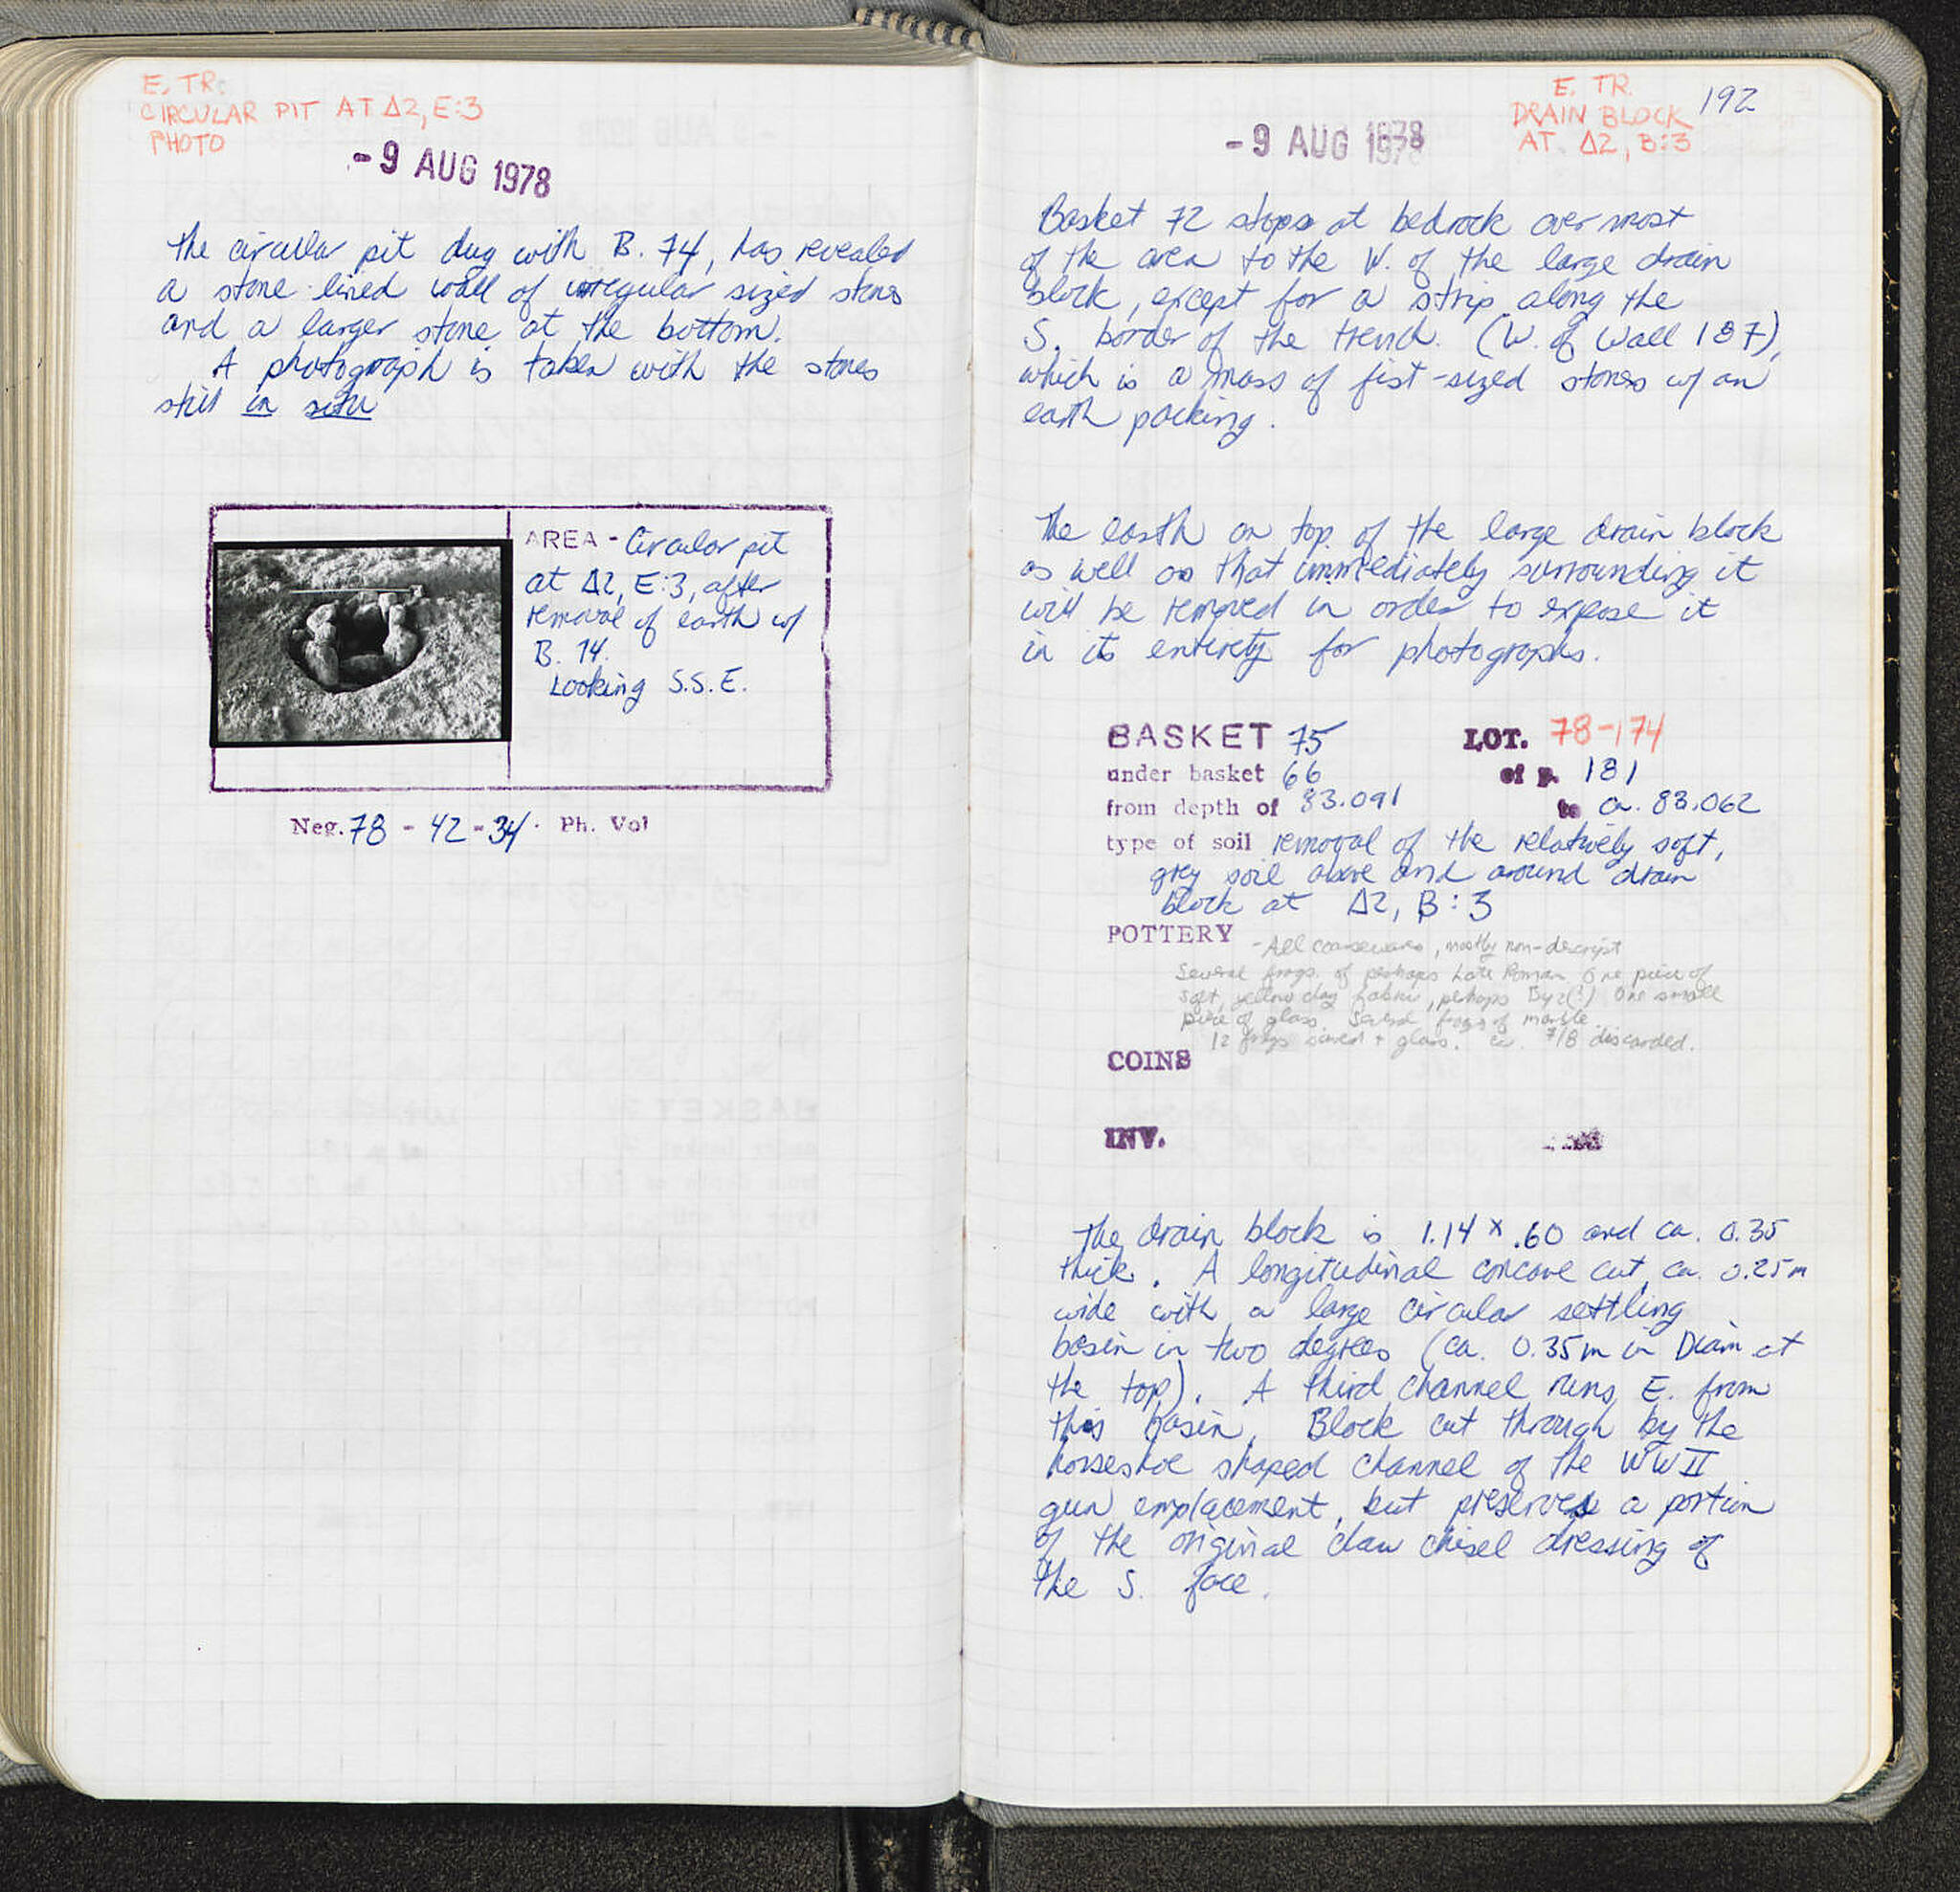 E. TR:
CIRCULAR PIT AT Δ2, E:3
PHOTO
-9 AUG 1978
The circular pit dug with B. 74, has revealed
a stone lined wall of irregular sized stones
and a larger stone at the bottom.
A photograph is taken with the stones
still in situ
AREA - Circular pit
at Δ2, E:3, after
removal of earth w/
B. 74.
Looking S.S.E.
Neg. 78 - 42 - 34. Ph. Vol
E. TR.
DRAIN BLOCK
AT Δ2, B:3
192
-9 AUG 1978
Basket 72 stops at bedrock over most
of the area to the W. of the large drain
block, except for a strip along the
S. border of the trench (W. of Wall 187),
which is a mass of fist-sized stones w/ an
earth packing.
The earth on top of the large drain block
as well as that immediately surrounding it
will be removed in order to expose it
in its entirety for photographs.
BASKET 75 LOT. 78-174
under basket 66 of p. 181
from depth of 83.091 to ca. 83.062
type of soil removal of the relatively soft,
grey soil above and around drain
block at Δ2, B:3
POTTERY - All coarsewares, mostly non-descript
Several frags. of perhaps Late Roman One piece of
soft, yellow clay fabric, perhaps Byz(?) One small
piece of glass. Several frags of marble.
12 frags saved + glass. ca. 7/8 discarded.
COINS
INV.
The drain block is 1.14 x .60 and ca. 0.35
thick. A longitudinal concave cut, ca. 0.25m
wide with a large circular settling
basin in two degrees (ca. 0.35m in Diam at
the top). A third channel runs E. from
this basin. Block cut through by the
horseshoe shaped channel of the WWII
gun emplacement, but preserves a portion
of the original claw chisel dressing of
the S. face.